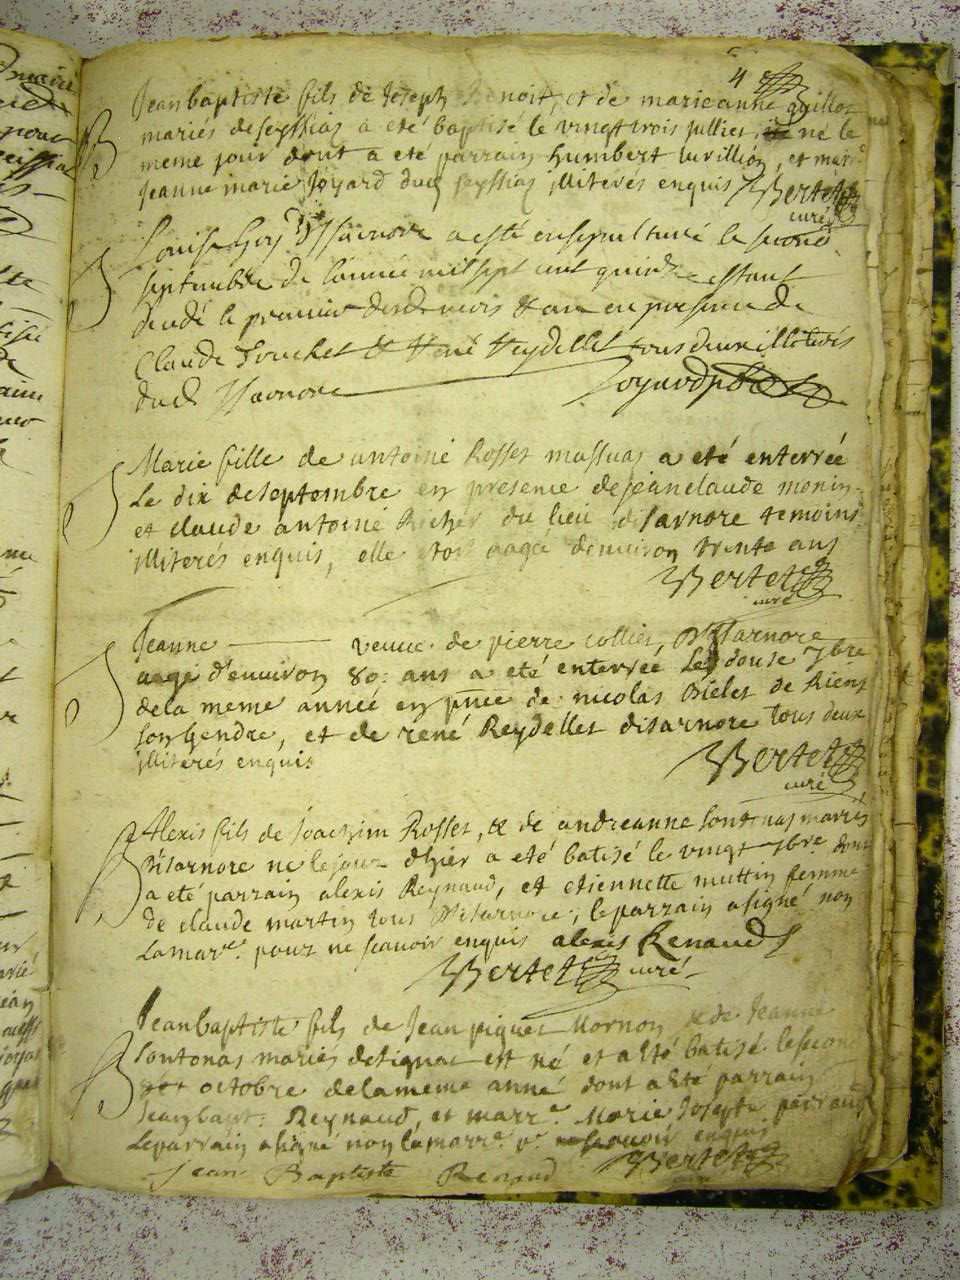 4
Jean baptiste fils de Joseph Benoit, et de marieanne guillot
mariés de seyssias a eté baptisé le vingt trois jullier, né le
meme jour dont a eté parrain humbert et marr.
jeanne marie Joyard dud seyssias illiterés enquis Bertet
curé
Louise Goy D'Isarnore a esté ensepulturé le second
septembre de l'année mil sept cent quinze estant
decedé le premier desd mois & an en presence de
Claude Fouchet & René Reydellet tous deux illiterés
dud Isarnore Joyard pbr
Marie fille de antoine Rosset massuas a eté enterrée
Le dix deseptembre en presence de jeanclaude monin
et claude antoine Richer du lieu disarnore temoins
illiterés enquis, elle etoit aagée denviron trente ans
Bertet
curé
Jeanne veuve de pierre collier, D'Isarnore
aagé d'environ 80: ans a eté enterrée Le douse 7bre
dela meme année en pñce de nicolas Bielet de Riens
son Gendre, et de rené Reydellet disarnore tous deux
illiterés enquis Bertet
curé
Alexis fils de Joachim Rosset, & de andreanne sontonas mariés
D'isarnore né le jour d'hier a eté batisé le vingt 7bre dont
a eté parrain alexis Reynaud, et etiennette muttin femme
de claude martin tous D'isarnore, le parrain a signé non
La marr.e pour ne scavoir enquis alexis Renaud
Bertet curé
Jean baptiste fils de Jean piquet Mornon & de Jeanne
sontonas mariés de tignat est né et a eté batisé le second
octobre dela meme anné dont a eté parrain
Jean bapt: Reynaud, et marr.e Marie Josepte perraud
Le parrain a signé non la marr.e p.r ne scavoir enquis
Jean Baptiste Renaud Bertet
curé